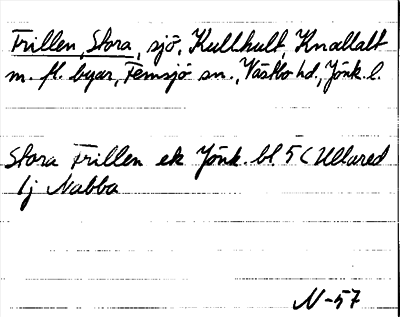 Frillen, Stora, sjö, Kullhult, Knallalt
m. fl. byar, Femsjö sn., Västbo hd., Jönk. l.
Stora Frillen ek Jönk. bl 5 ( Ullared
lj Nabba
N-57